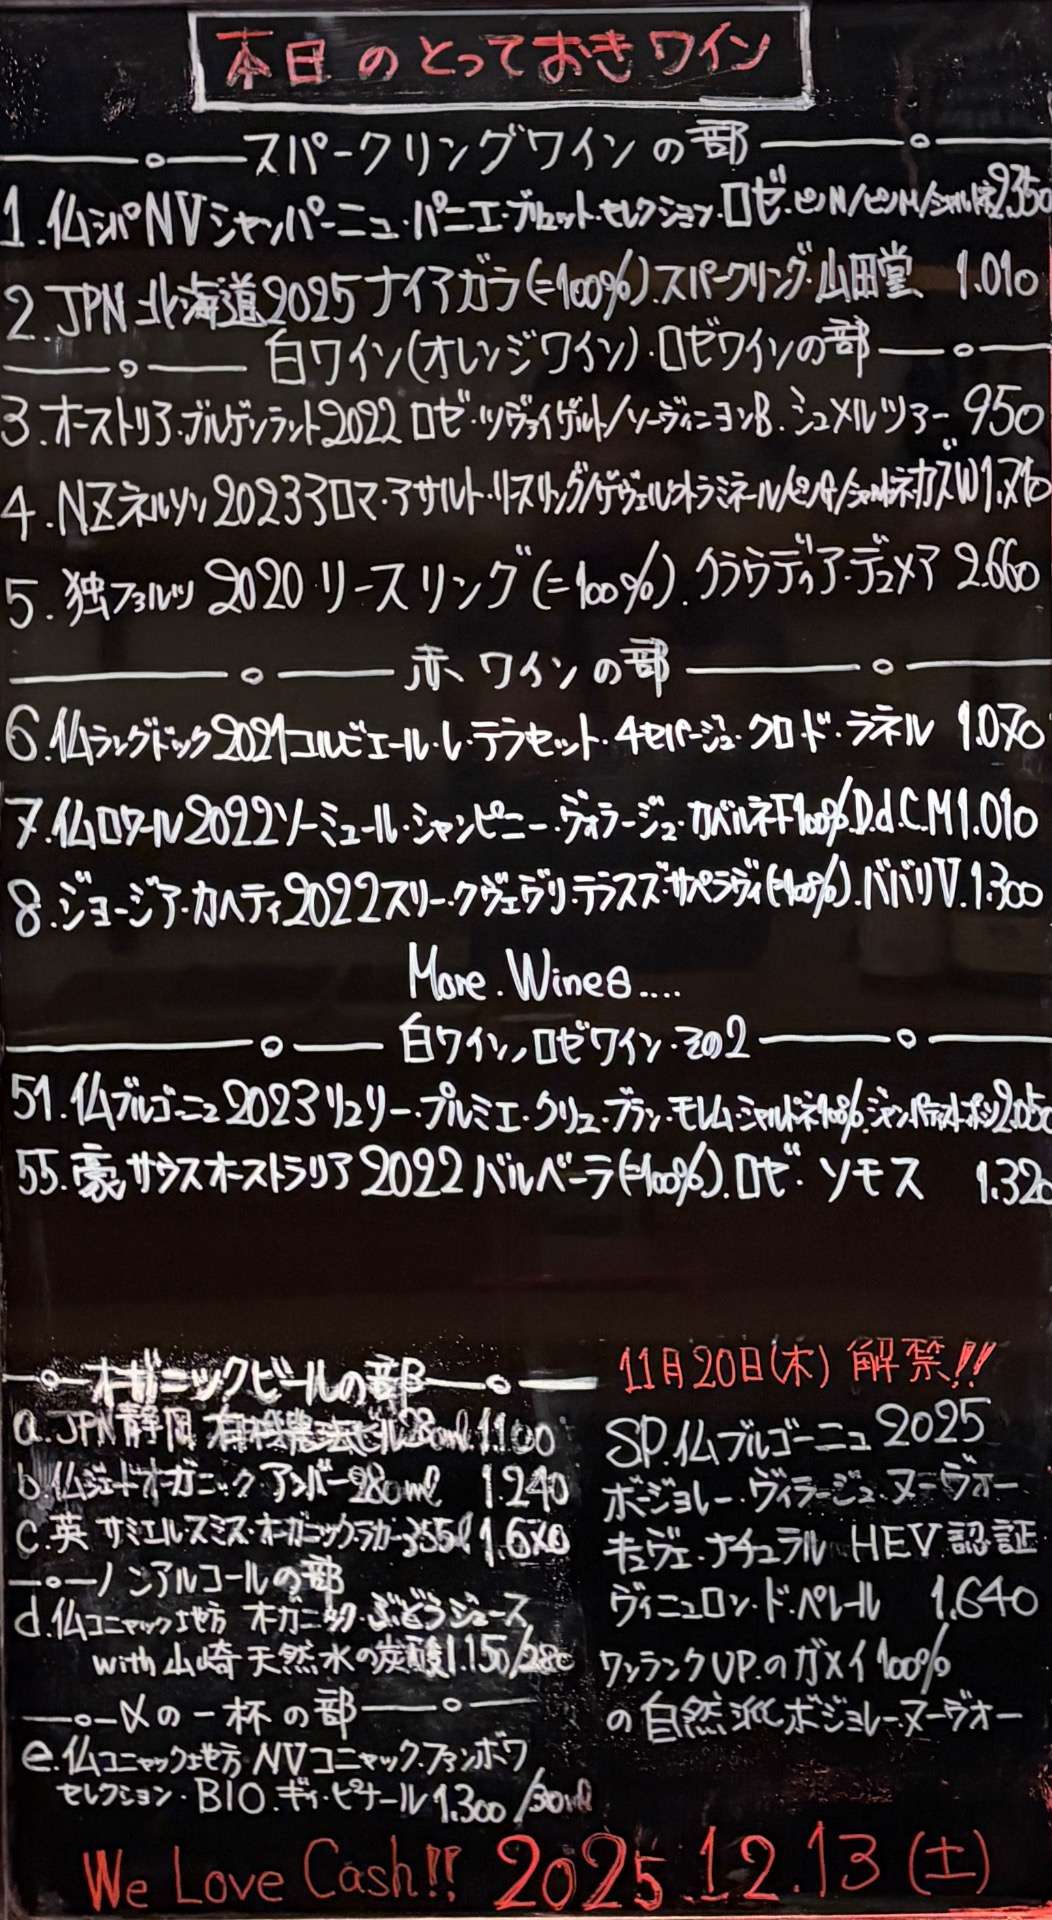 本日のとっておきワイン
スパークリングワインの部
1.仏シャンパNVシャンパーニュ・パニエ・ブリュット・セレクション・ロゼ・ピノN/ピノM/シャルドネ2.350
2.JPN北海道2025ナイアガラ(=100%).スパークリング・山田堂 1.010
白ワイン(オレンジワイン)・ロゼワインの部
3.オーストリア・ブルゲンラント2022 ロゼ・ツヴァイゲルト/ソーヴィニヨンB.シュメルツァー 950
4.NZネルソン2023アロマ・アサルト・リースリング/ゲヴュルツトラミネール/ピノG/シャルドネ・カズW
5.独ファルツ2020リースリング(=100%).クラウディア・デュメア 2.660
赤ワインの部
6.仏ラングドック2021コルビエール・レ・テラセット・4セパージュ・クロ・ド・ラネル 1.070
7.仏ロワール2022ソーミュール・シャンピニー・ヴォラージュ・カベルネF100%D.d.C.M1.010
8.ジョージア・カヘティ2022スリー・クヴェヴリ・テラスズ・サペラヴィ(=100%).ババリV.1.300
More.Wines....
白ワイン,ロゼワイン・その2
51.仏ブルゴーニュ2023リュリー・プルミエ・クリュ・ブラン・モレム・シャルドネ100%.ジャンバティスト・ポンソ2.050
55.豪サウスオーストラリア2022バルベーラ(=100%).ロゼ・ソモス 1.320
オガニックビールの部
a.JPN静岡 有機農法ビール 1.100
b.仏ジェードオーガニック アンバー280ml 1.240
c.英 サミエル・スミス・オーガニックラガー355ml 1.670
ノンアルコールの部
d.仏コニャック地方 オガニック ぶどうジュース
with山崎天然水の炭酸1.150/280
〆の一杯の部
e.仏コニャック地方NVコニャック・ファンボワ
セレクション・BIO.ギィ・ピナール1.300/30ml
11月20日(木)解禁!!
SP.仏ブルゴーニュ2025
ボージョレー・ヴィラージュ・ヌーヴォー
キュヴェ・ナチュラル HEV認証
ヴィニュロン・ド・ペレール 1.640
ワンランクUP.のガメイ100%
の自然派ボジョレーヌーヴォー
We Love Cash!! 2025.12.13(土)